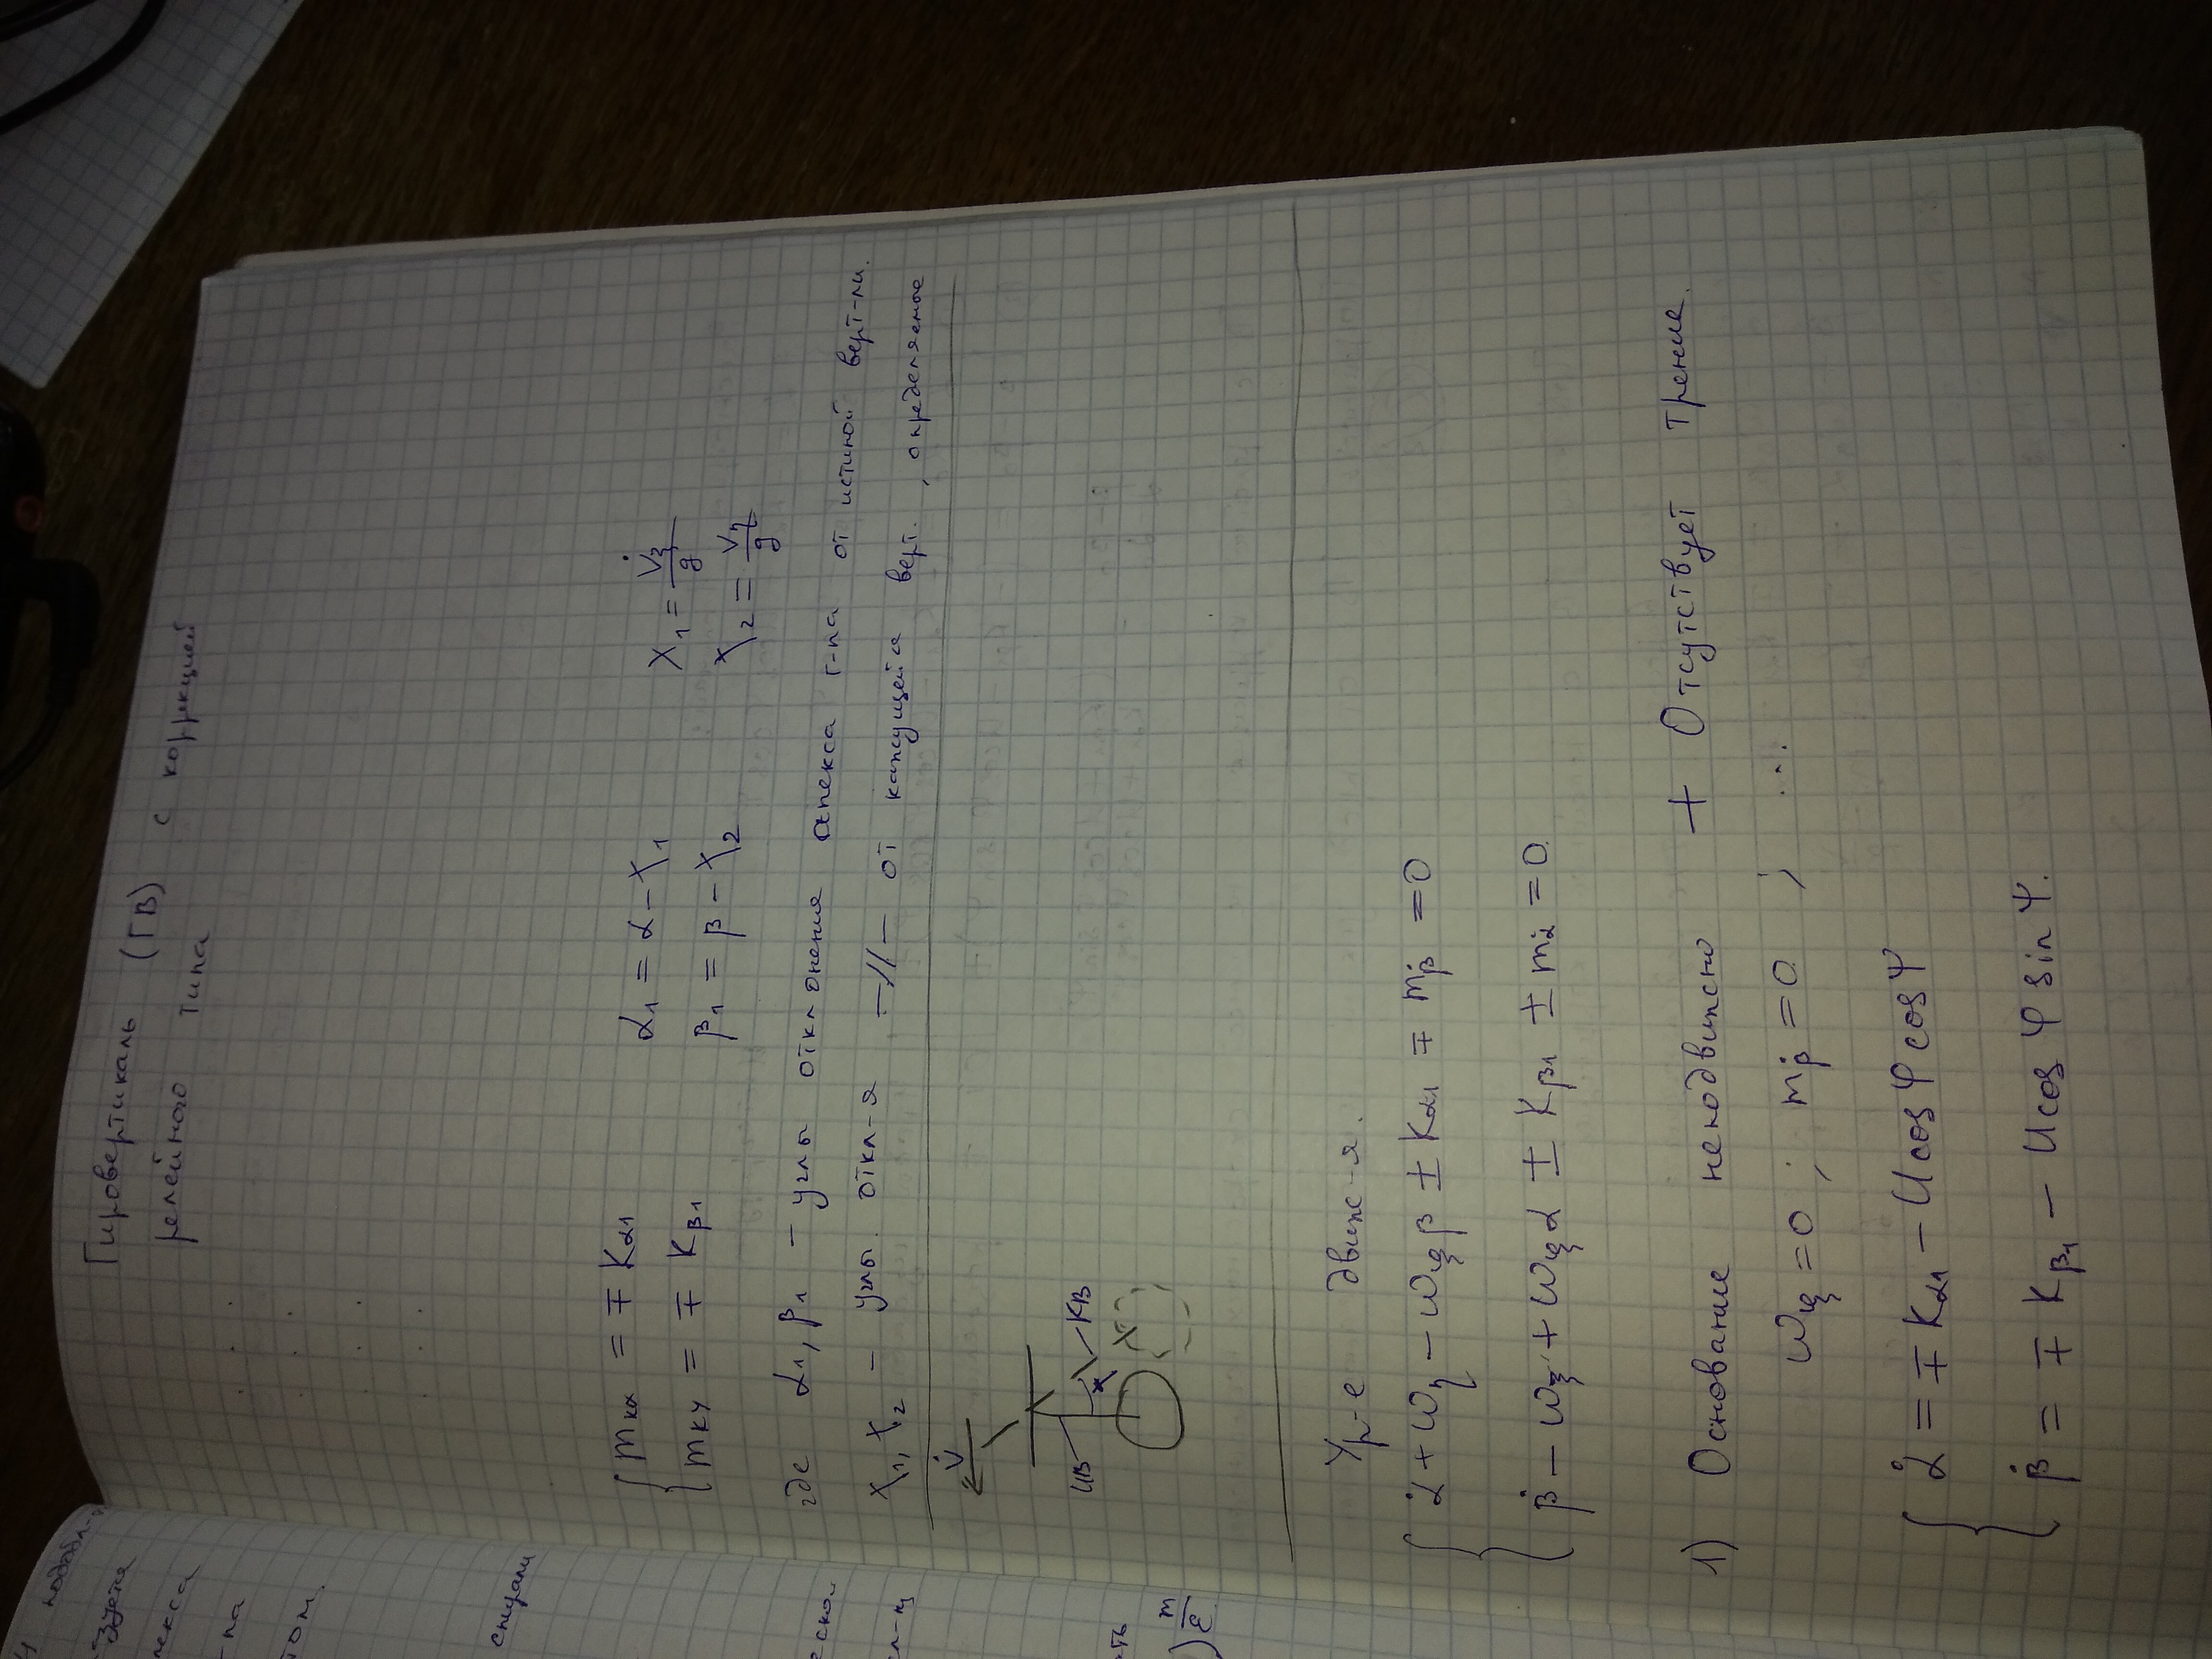 Гировертикаль (ГВ) с коррекцией
релейного типа
mкx = ∓ Kα1   α1 = α − χ1   χ1 = V̇ξ/g
mкy = ∓ Kβ1   β1 = β − χ2   χ2 = V̇η/g
где α1, β1 − углы отклонения апекса г-па от истиной верт-ли.
χ1, χ2 − углы откл-я −//− от кажущейся верт., определяемое
V̇
ИВ
КВ
χ
Ур-е движ-я.
α̇ + ωη − ωζβ ± Kα1 ∓ mβ̇ = 0
β̇ − ωξ + ωζα ± Kβ1 ± mα̇ = 0
1) Основание неподвижно + Отсутствует трение.
ωζ = 0 ; mβ̇ = 0 ; ...
α̇ = ∓ Kα1 − U cos φ cos ψ
β̇ = ∓ Kβ1 − U cos φ sin ψ.
екса
-па
том.
спирали
еской
ать
m/ε